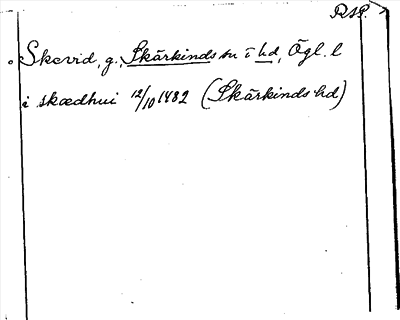 RAP.
Skevid, g., Skärkinds sn i hd, Ögl. l
i skædhui 12/10 1482 (Skärkinds hd)